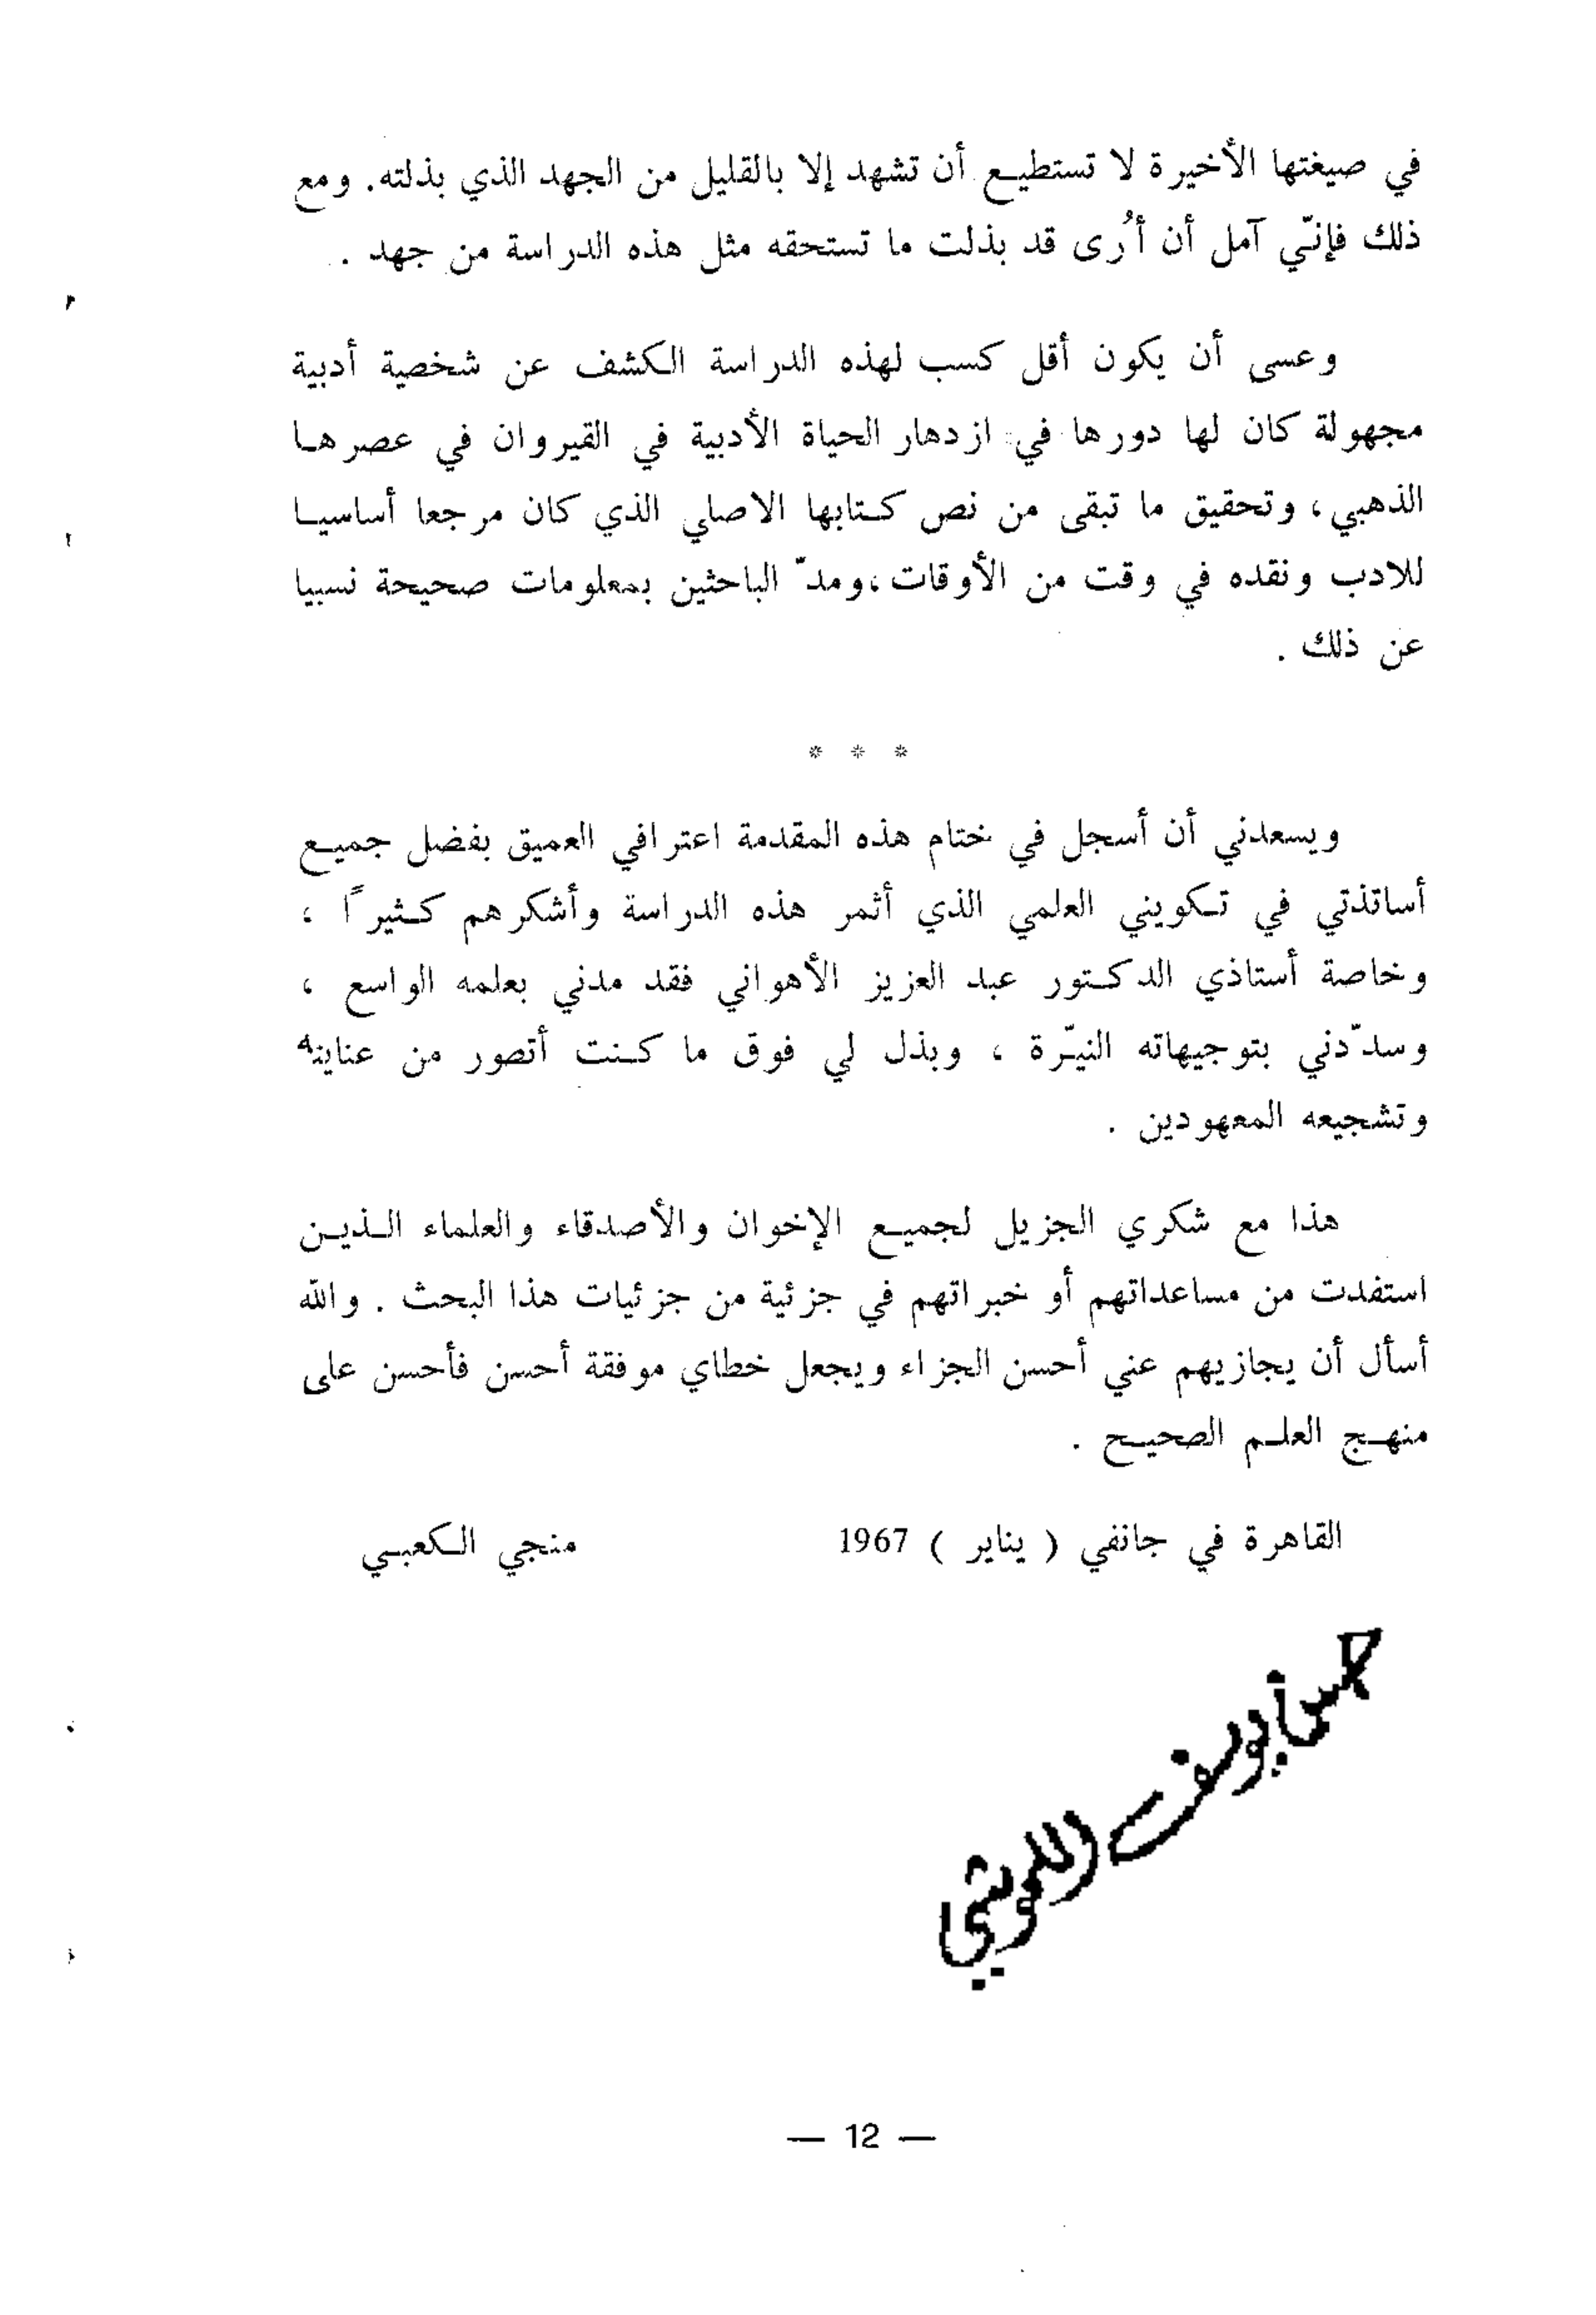 في صيغتها الأخيرة لا تستطيع أن تشهد إلا بالقليل من الجهد الذي بذلته. ومع
ذلك فإنّي آمل أن أُرى قد بذلت ما تستحقه مثل هذه الدراسة من جهد .
وعسى أن يكون أقل كسب لهذه الدراسة الكشف عن شخصية أدبية
مجهولة كان لها دورها في ازدهار الحياة الأدبية في القيروان في عصرها
الذهبي، وتحقيق ما تبقى من نص كتابها الاصلي الذي كان مرجعا أساسيا
للادب ونقده في وقت من الأوقات،ومدّ الباحثين بمعلومات صحيحة نسبيا
عن ذلك .
* * *
ويسعدني أن أسجل في ختام هذه المقدمة اعترافي العميق بفضل جميع
أساتذتي في تكويني العلمي الذي أثمر هذه الدراسة وأشكرهم كثيراً ،
وخاصة أستاذي الدكتور عبد العزيز الأهواني فقد مدني بعلمه الواسع ،
وسدّدني بتوجيهاته النيّرة ، وبذل لي فوق ما كنت أتصور من عنايته
وتشجيعه المعهودين .
هذا مع شكري الجزيل لجميع الإخوان والأصدقاء والعلماء الذين
استفدت من مساعداتهم أو خبراتهم في جزئية من جزئيات هذا البحث . والله
أسأل أن يجازيهم عني أحسن الجزاء ويجعل خطاي موفقة أحسن فأحسن على
منهج العلم الصحيح .
القاهرة في جانفي ( يناير ) 1967 منجي الكعبي
— 12 —